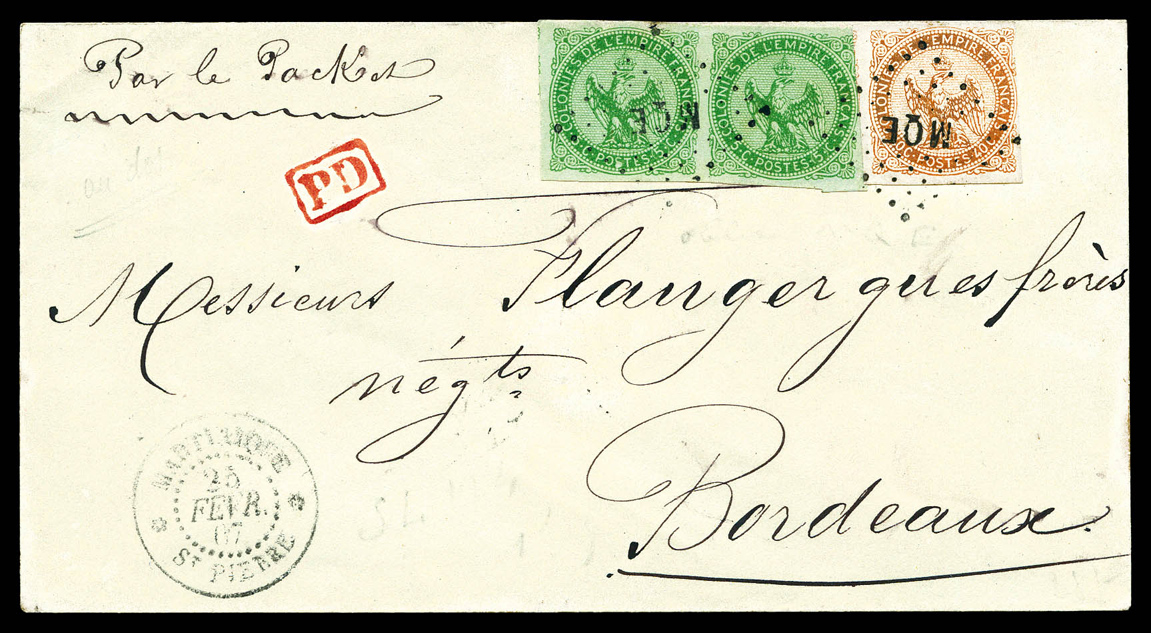 Par le Packet
COLONIES DE L'EMPIRE FRANÇAIS
POSTES 5C
COLONIES DE L'EMPIRE FRANÇAIS
5C POSTES 5C
COLONIES DE L'EMPIRE FRANÇAIS
40C POSTES 40C
MQE
MQE
PD
Messieurs Flangergues frères
négts
Bordeaux
MARTINIQUE
25
FEVR.
67
ST PIERRE